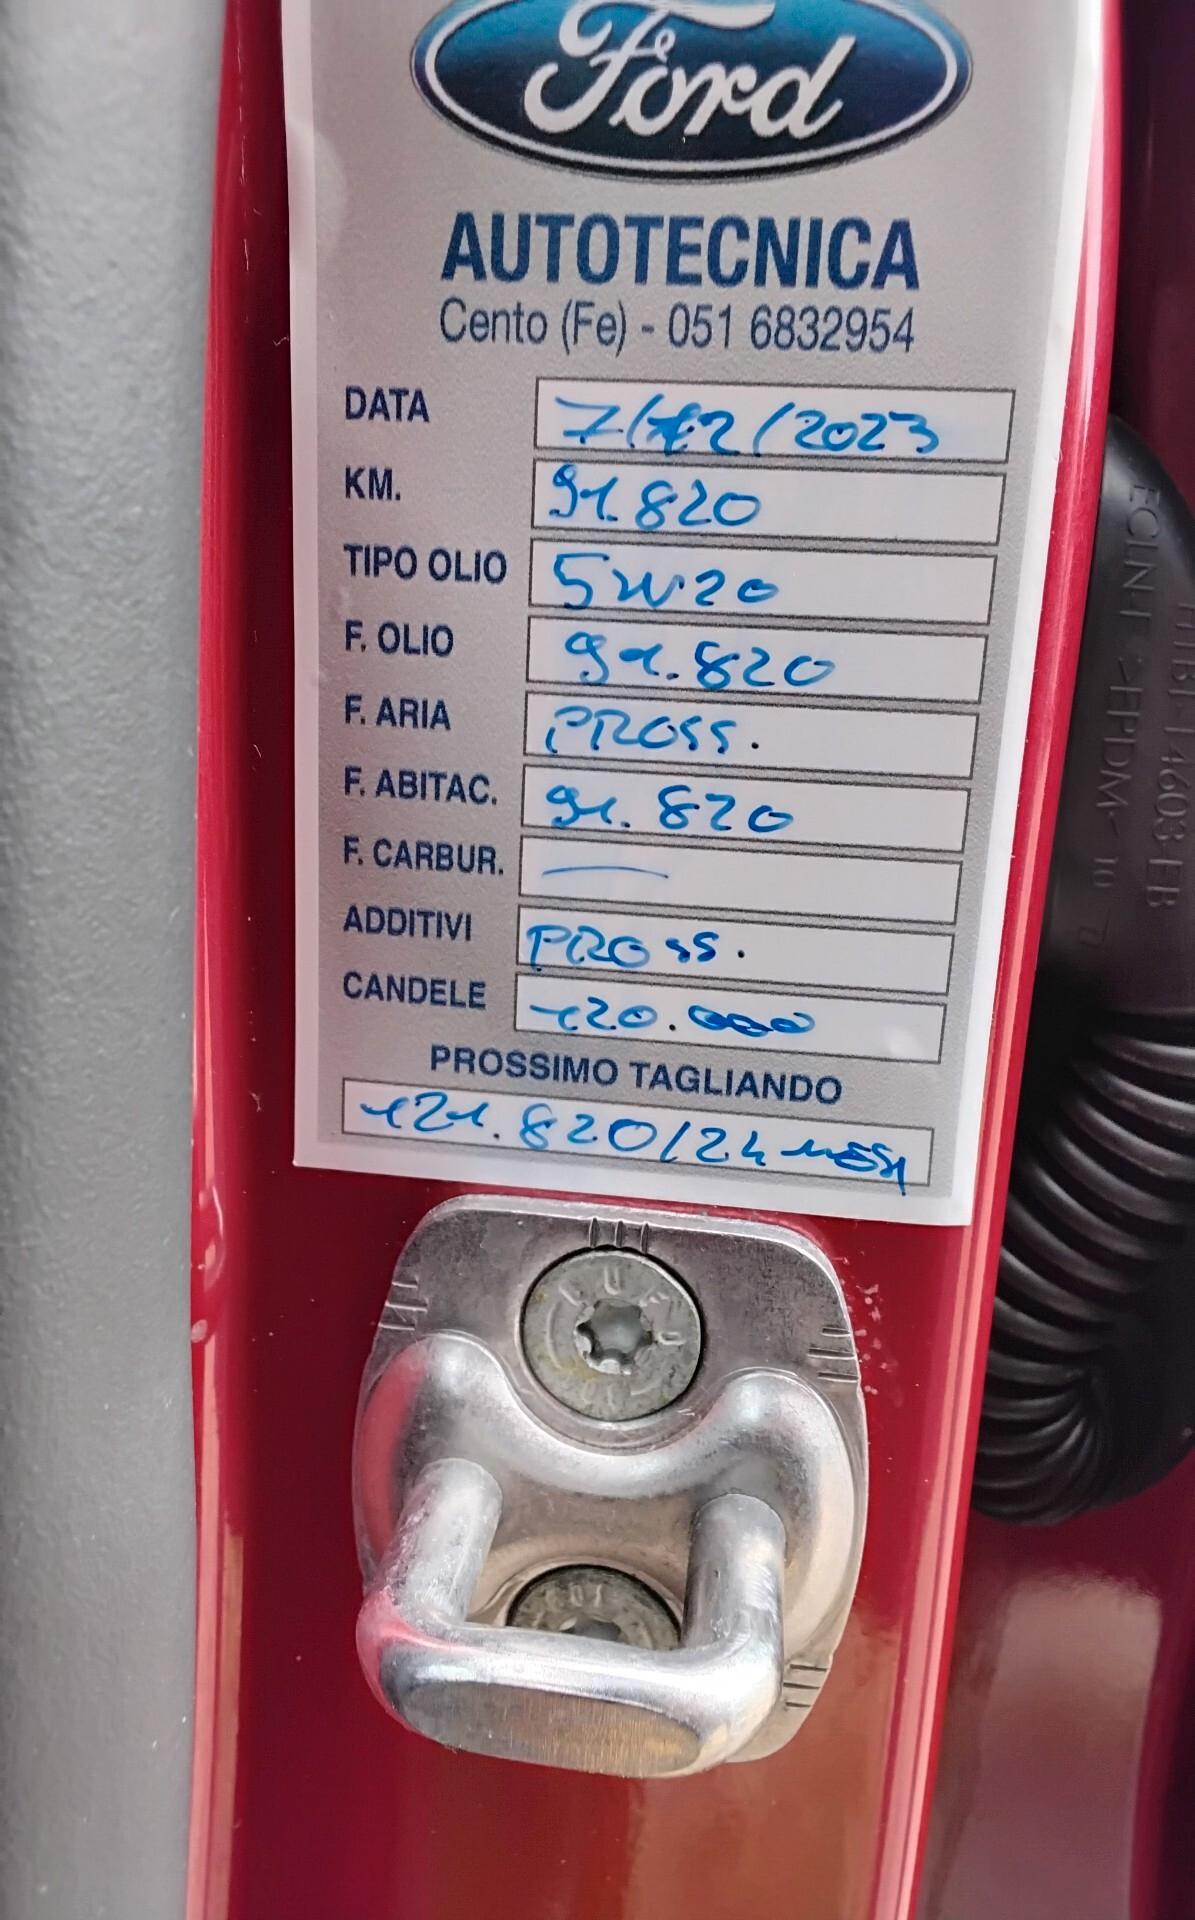 Ford
AUTOTECNICA
Cento (Fe) - 051 6832954
DATA 7/12/2023
KM. 91.820
TIPO OLIO 5W20
F. OLIO 91.820
F. ARIA PROSS.
F. ABITAC. 91.820
F. CARBUR. —
ADDITIVI PROSS.
CANDELE 120.000
PROSSIMO TAGLIANDO
121.820/24 MESI
>EPDM< 10